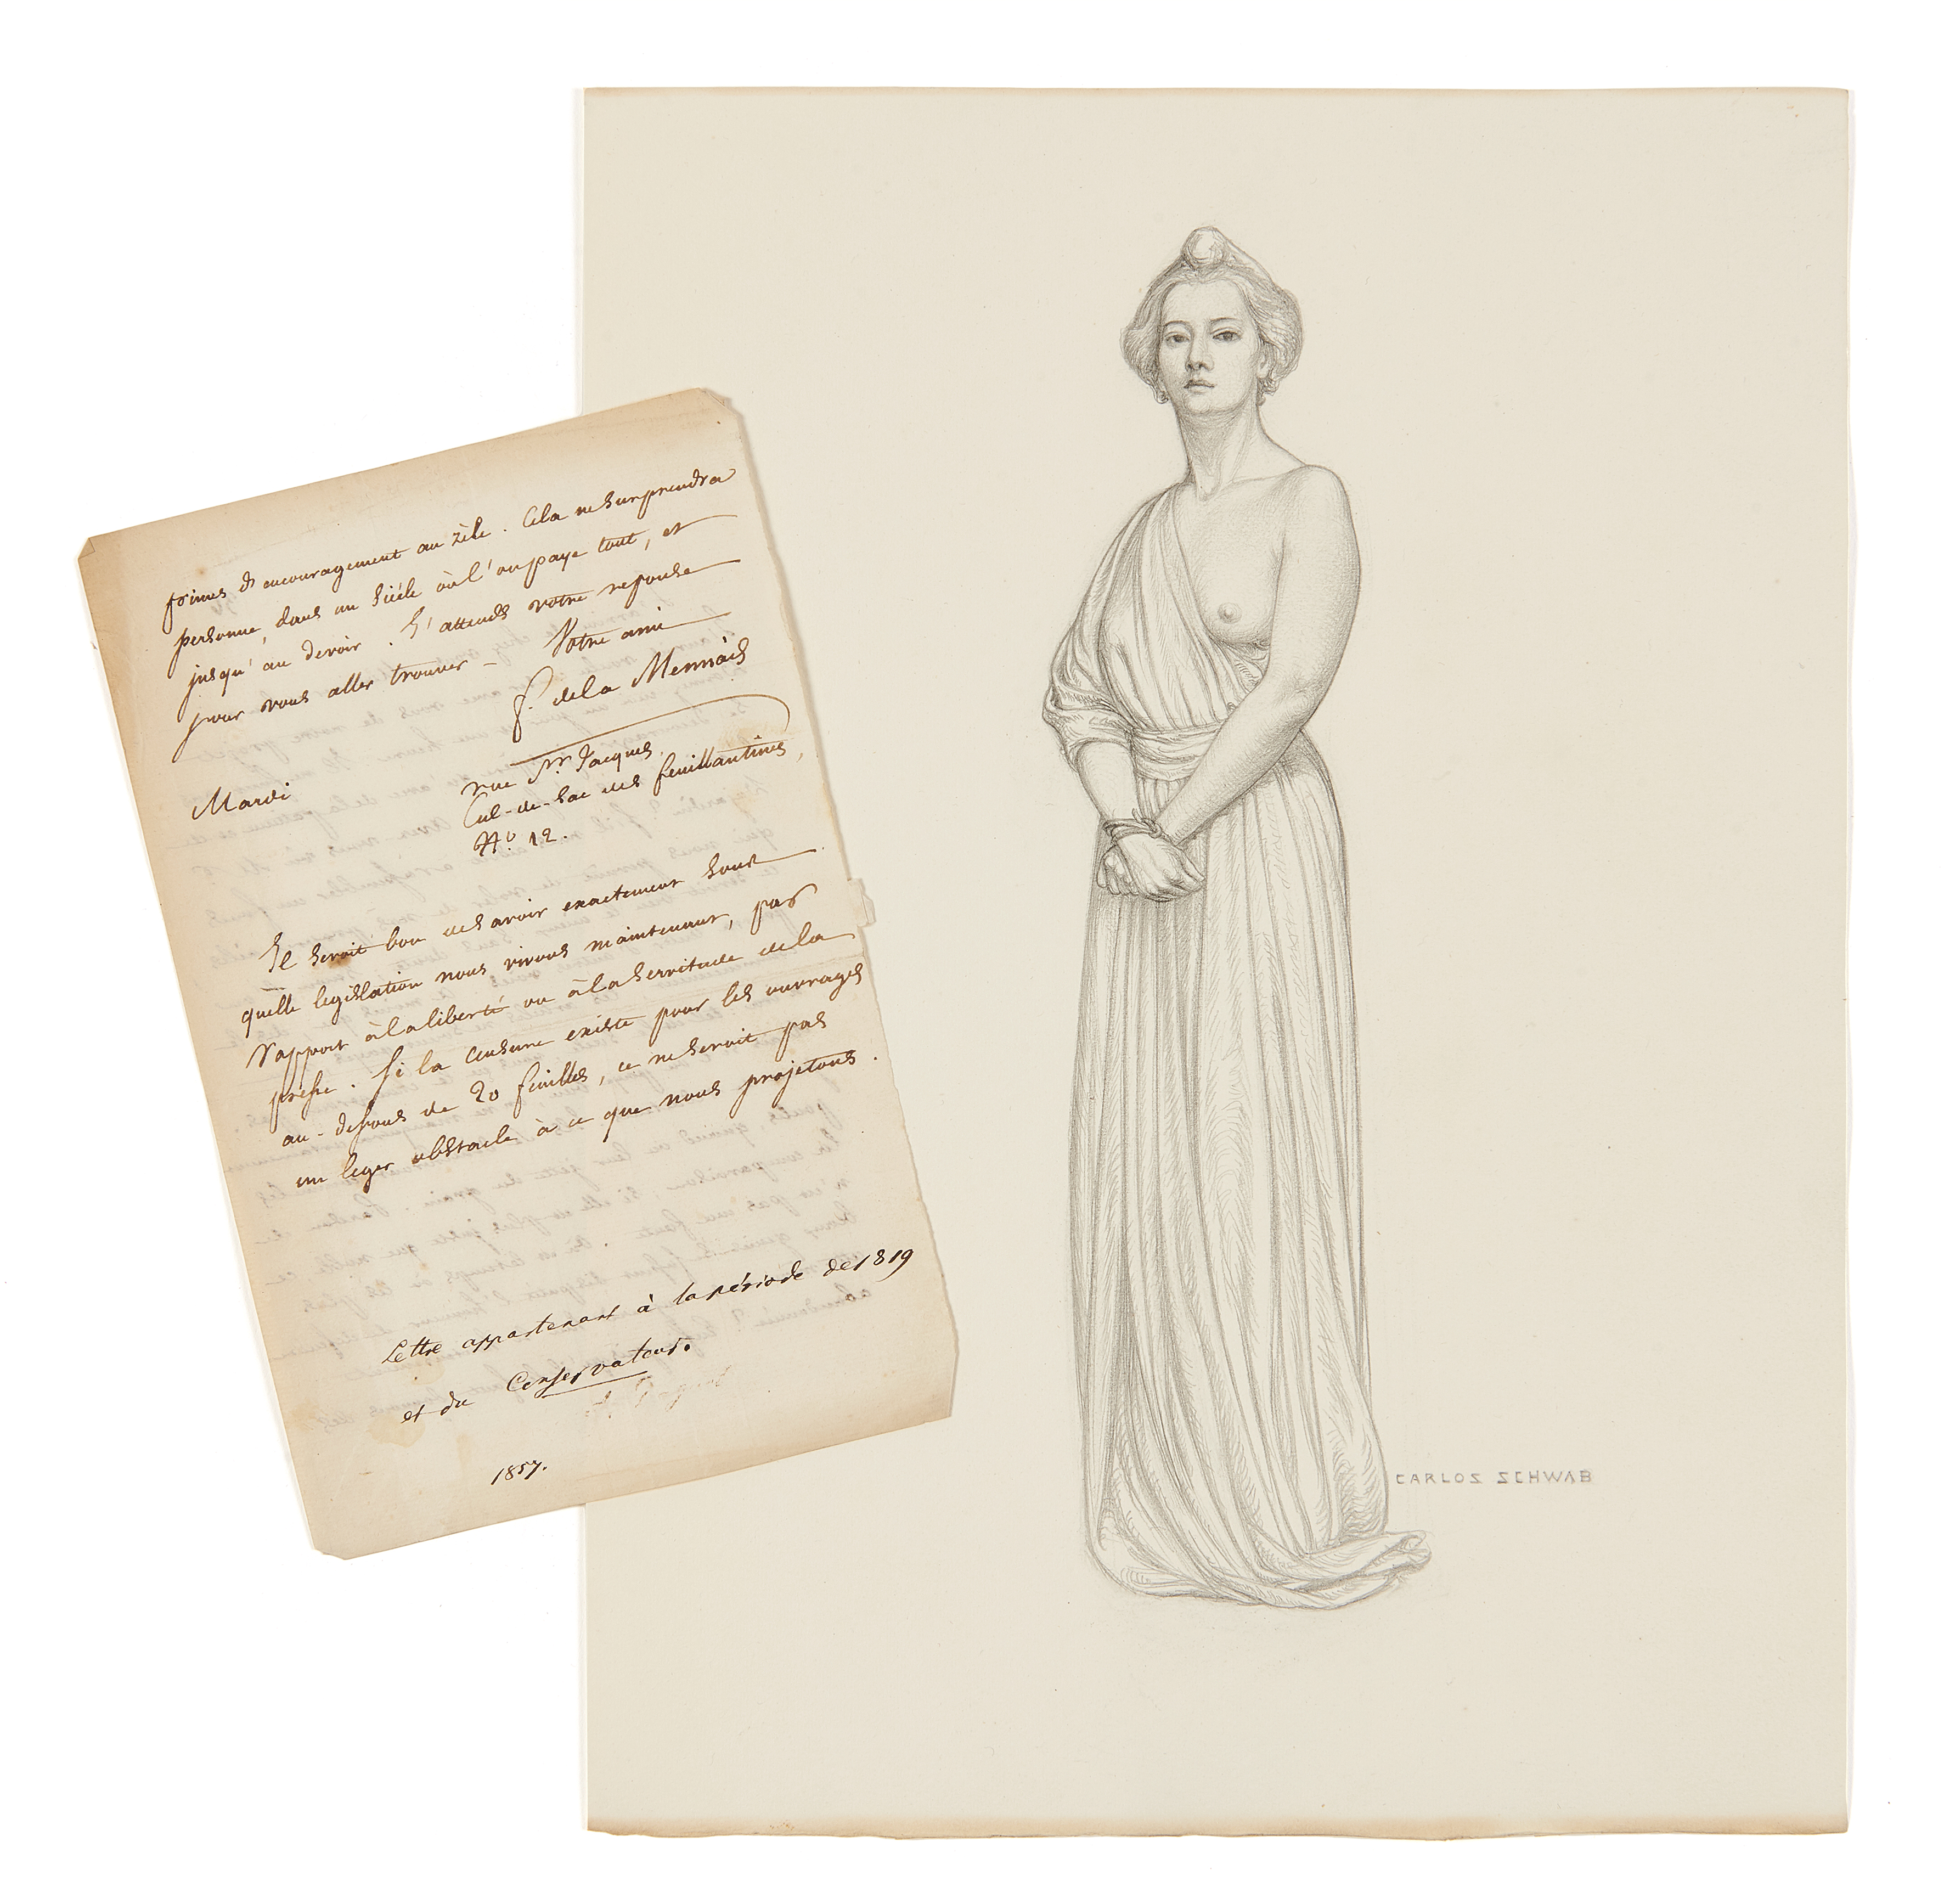 primes d'encouragement au zèle. Cela ne surprendra
personne, dans un siècle où l'on paye tout, et
jusqu'au devoir. J'attends votre réponse
pour vous aller trouver – Votre ami
f. de la Mennais
Mardi
rue St. Jacques,
Cul-de-sac des feuillantines,
N.º 12.
Il seroit bon de savoir exactement sous
quelle législation nous vivons maintenant, par
rapport à la liberté ou à la servitude de la
presse. Si la censure existe pour les ouvrages
au-dessous de 20 feuilles, ce ne seroit pas
un leger obstacle à ce que nous projetons.
Lettre appartenant à la période de 1819
et du Conservateur.
1857.
CARLOS SCHWAB